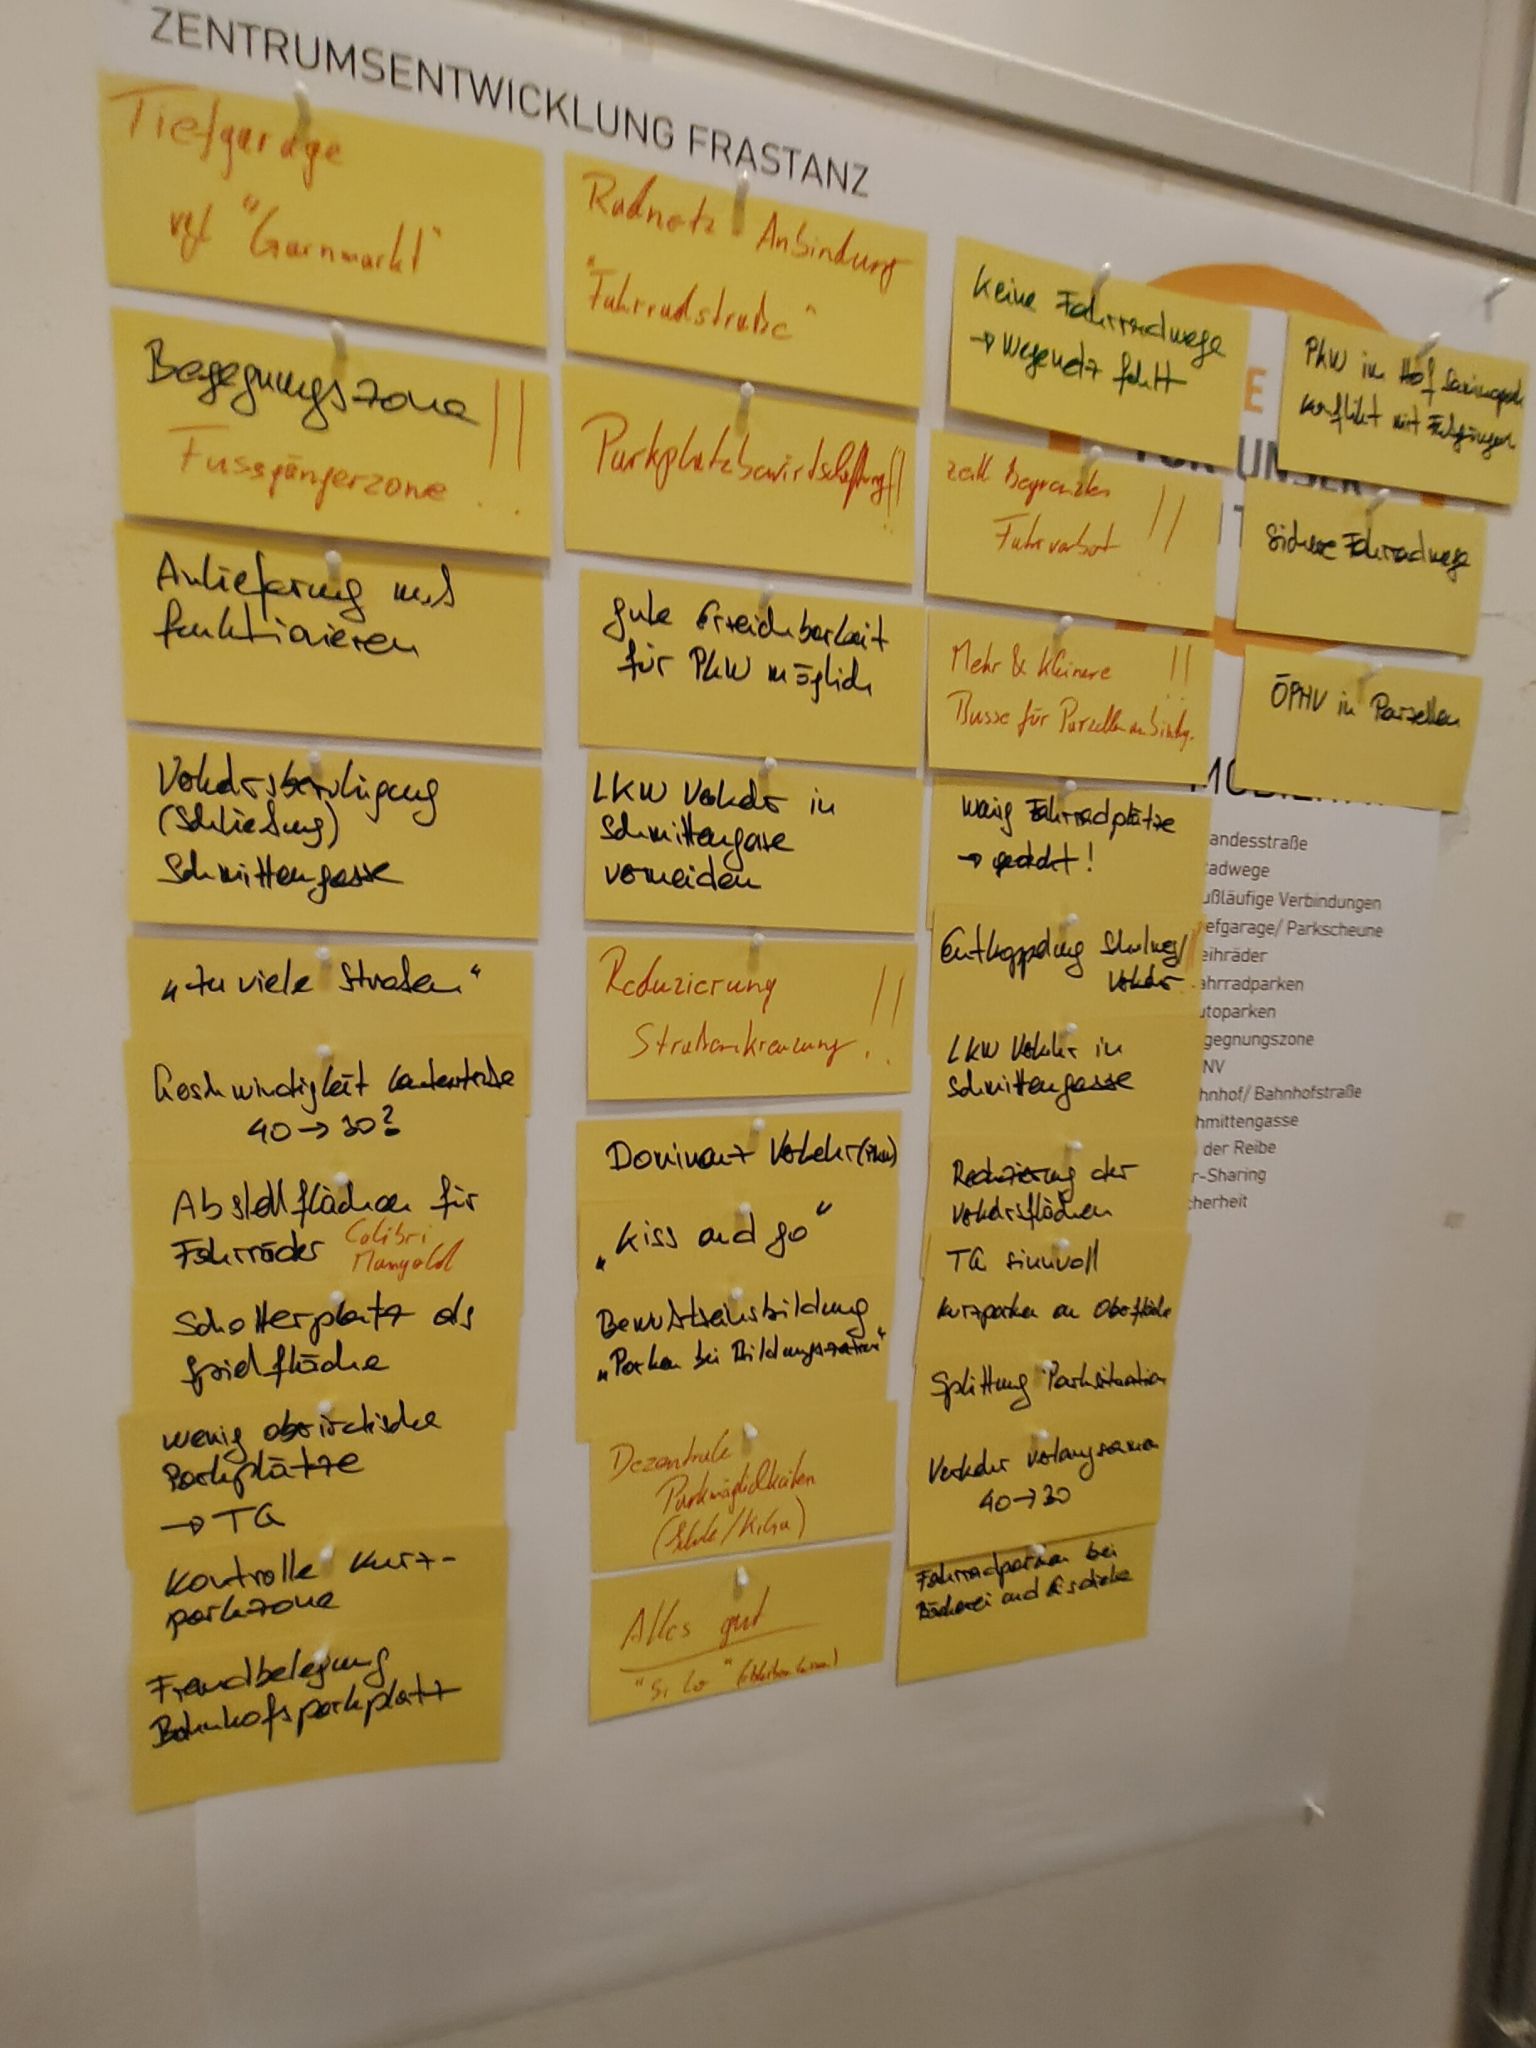 ZENTRUMSENTWICKLUNG FRASTANZ
Tiefgarage
vgl "Garnmarkt"
Begegnungszone !!
Fussgängerzone ...
Anlieferung muß
funktionieren
Verkehrsberuhigung
(Schließung)
Schmittengasse
„zu viele Straßen“
Geschwindigkeit
40→30?
Abstellflächen für
Fahrräder Colibri
Mangold
Schotterplatz als
Spielfläche
wenig oberirdische
Parkplätze
→ TG
Kontrolle Kurz-
parkzone
Fremdbelegung
Bahnhofsparkplatz
Radnetz Anbindung
"Fahrradstraße"
Parkplatzbewirtschaftung!!
gute Erreichbarkeit
für PKW möglich
LKW Verkehr in
Schmittengasse
vermeiden
Reduzierung !!
Straßenkreuzung
Dominanz Verkehr (PKW)
„Kiss and go“
Bewußtseinsbildung
„Parken bei Bildungszentren“
Dezentrale
Parkmöglichkeiten
(Schule/Kiga)
Alles gut
"Si Lo"
Keine Fahrradwege
→ Wegenetz fehlt
zeitl. Begrenztes !!
Fahrverbot
Mehr & kleinere !!
Busse für Parzellenanbindg.
wenig Fahrradplätze
→ gedeckt!
Entkoppelung Schulweg/
Verkehr
LKW Verkehr in
Schmittengasse
Reduzierung der
Verkehrsflächen
TG sinnvoll
Kurzparken an Oberfläche
Splittung Parksituation
Verkehr verlangsamen
40→30
Fahrradparken bei
Bäckerei und Eisdiele
PKW im Hof
Konflikt mit Fußgänger
Sichere Fahrradwege
ÖPNV in Parzellen
E
UNSER
andesstraße
adwege
ußläufige Verbindungen
efgarage/ Parkscheune
eihräder
ahrradparken
utoparken
gegnungszone
NV
hnhof/ Bahnhofstraße
hmittengasse
der Reibe
r-Sharing
cherheit